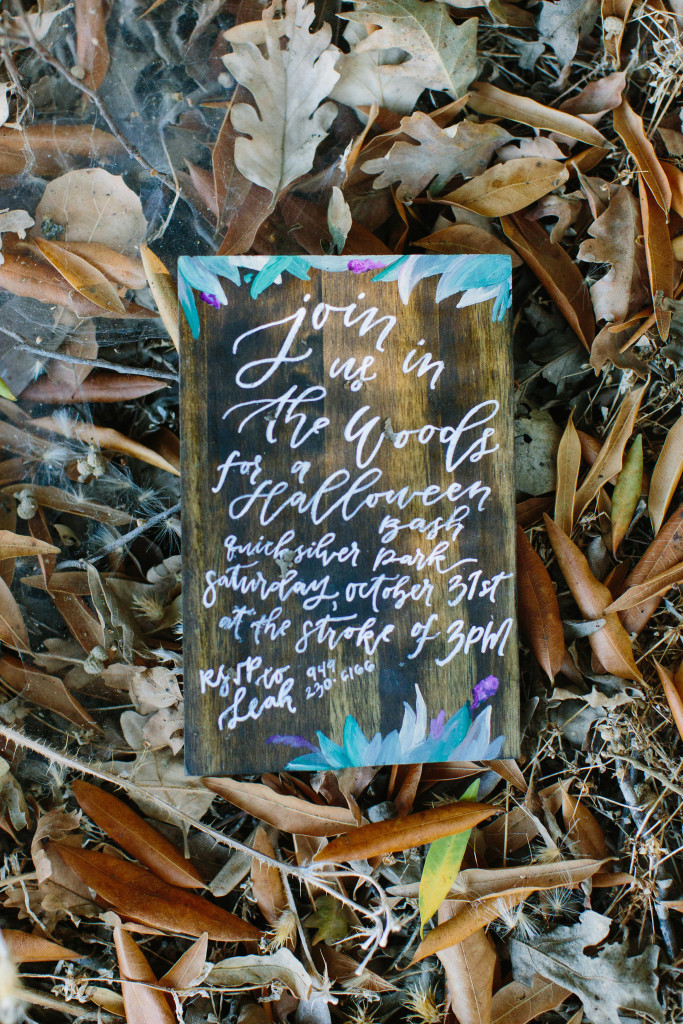 join
us in
the Woods
for a
Halloween
Bash
Quicksilver Park
Saturday, october 31st
at the stroke of 3PM
RSVP to
Leah
949
230·6166